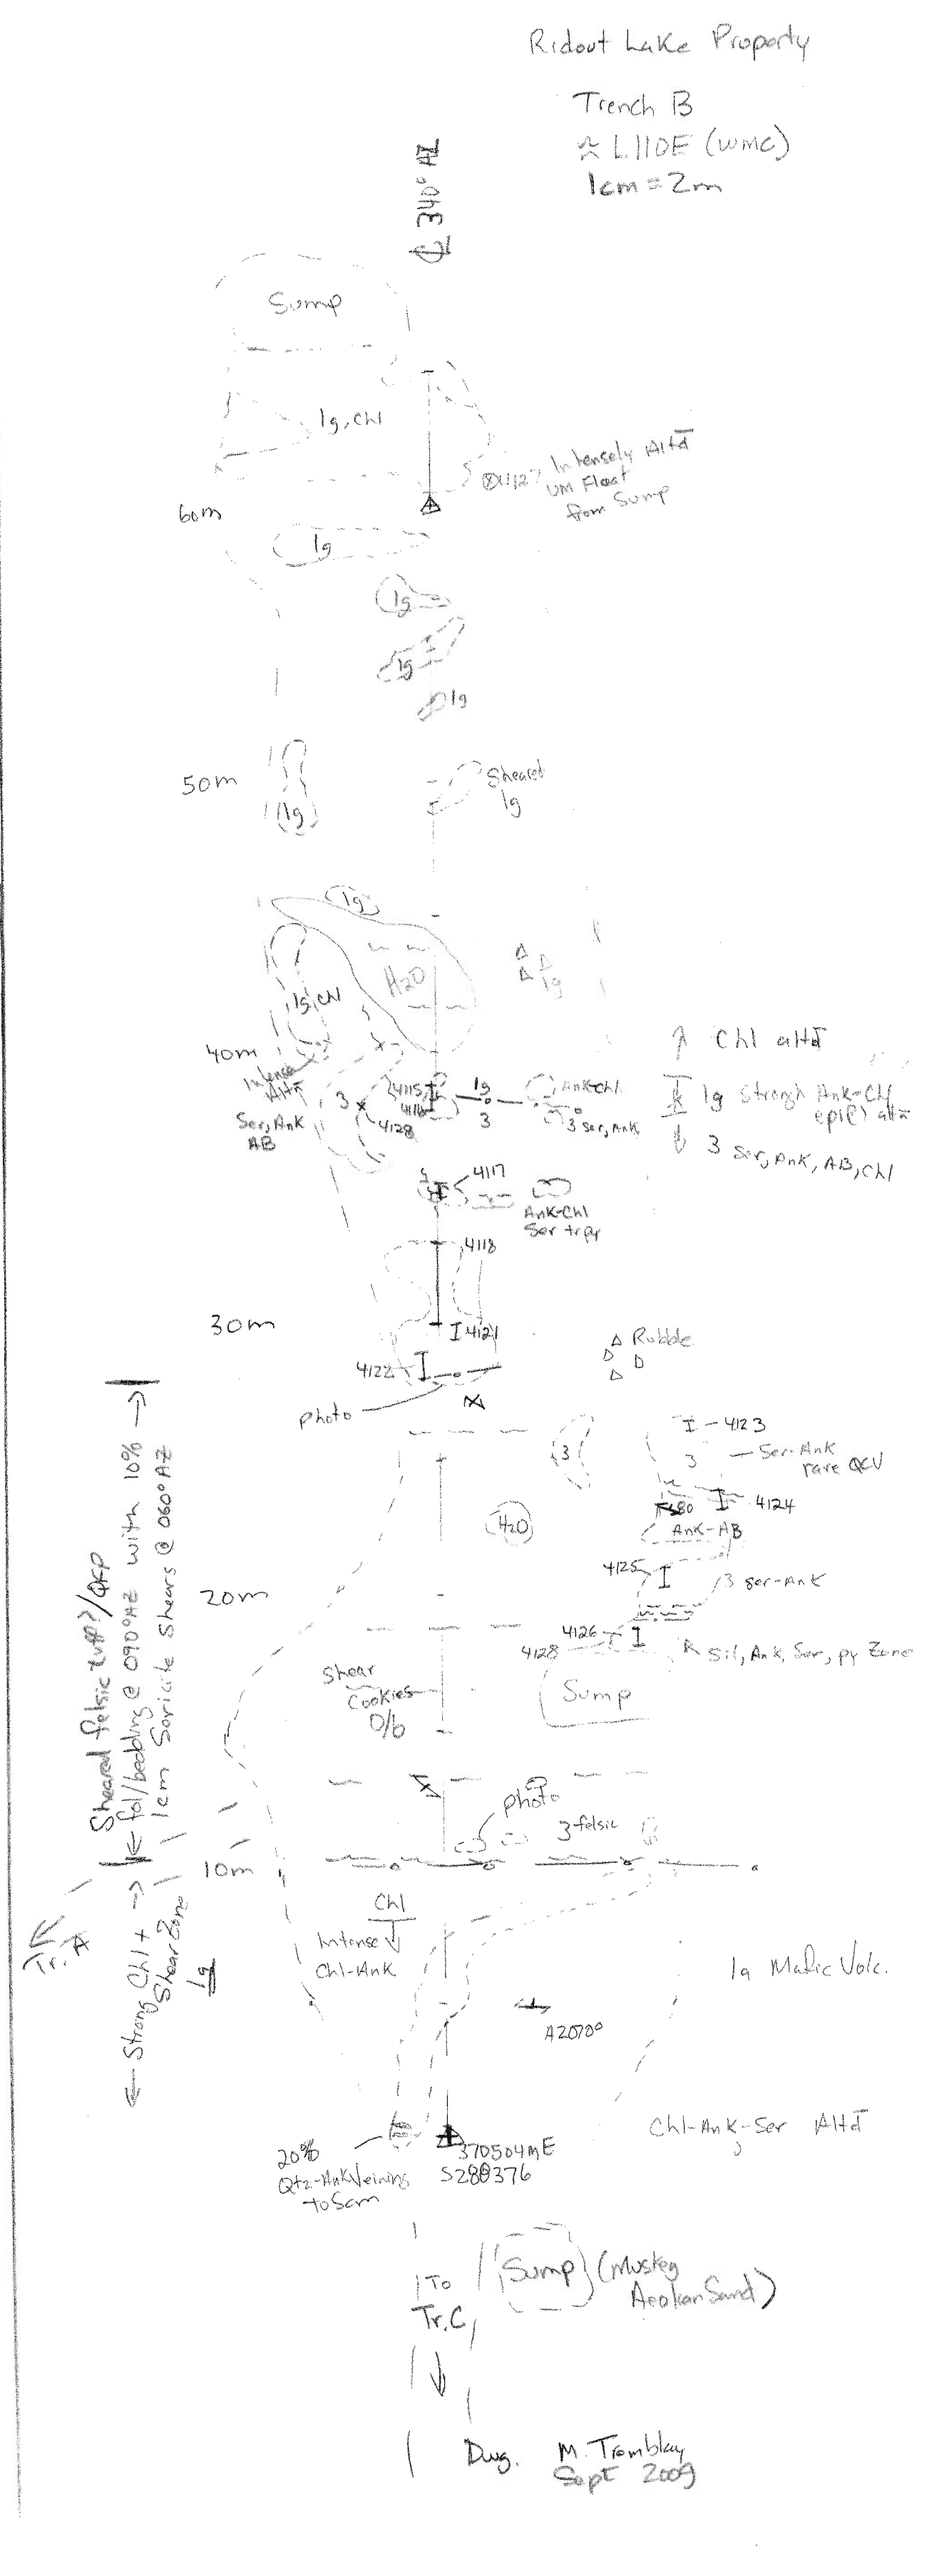 Ridout Lake Property
Trench B
≈ L110E (WMC)
1cm = 2m
℄ 340° AZ
Sump
1g, Chl
⊗4127 Intensely Alt'd
UM Float
from Sump
60m
1g
1g
1g
1g
50m
1g
Sheared
1g
1g
H2O
1g
1g, Chl
40m
Intense
Alt'n
Ser, Ank
AB
3
4128
4115
4116
1g
3
Ank-Chl
3 Ser, Ank
↑ Chl alt'd
1g Strongh Ank-Chl
epi(?) alt'n
↓ 3 Ser, Ank, AB, Chl
4117
Ank-Chl
Ser tr py
4118
30m
4121
4122
photo
Rubble
3
4123
3
Ser-Ank
rare QCV
H2O
080
4124
Ank-AB
4125
3 Ser-Ank
20m
4126
4128
Sil, Ank, Ser, py Zone
Sump
Shear
Cookies
O/b
photo
3 felsic
10m
Sheared felsic tuff?/QFP
← fol/bedding @ 090°AZ with 10% →
1cm Sericite Shears @ 060°AZ
← Strong Chl + →
Shear Zone
1g
Tr. A
Chl
Intense
Chl-Ank
1a Mafic Volc.
AZ070°
Chl-Ank-Ser Alt'd
20%
Qtz-Ank Veining
to 5cm
370504mE
5288376
Sump (Muskeg
Aeolean Sand)
To
Tr. C
Dwg. M. Tremblay
Sept 2009